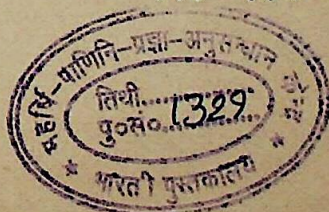 महर्षि-पाणिनि-प्रज्ञा-अनुसन्धान केन्द्र
तिथी..........
पु०सं० 1329
* भारती पुस्तकालय *